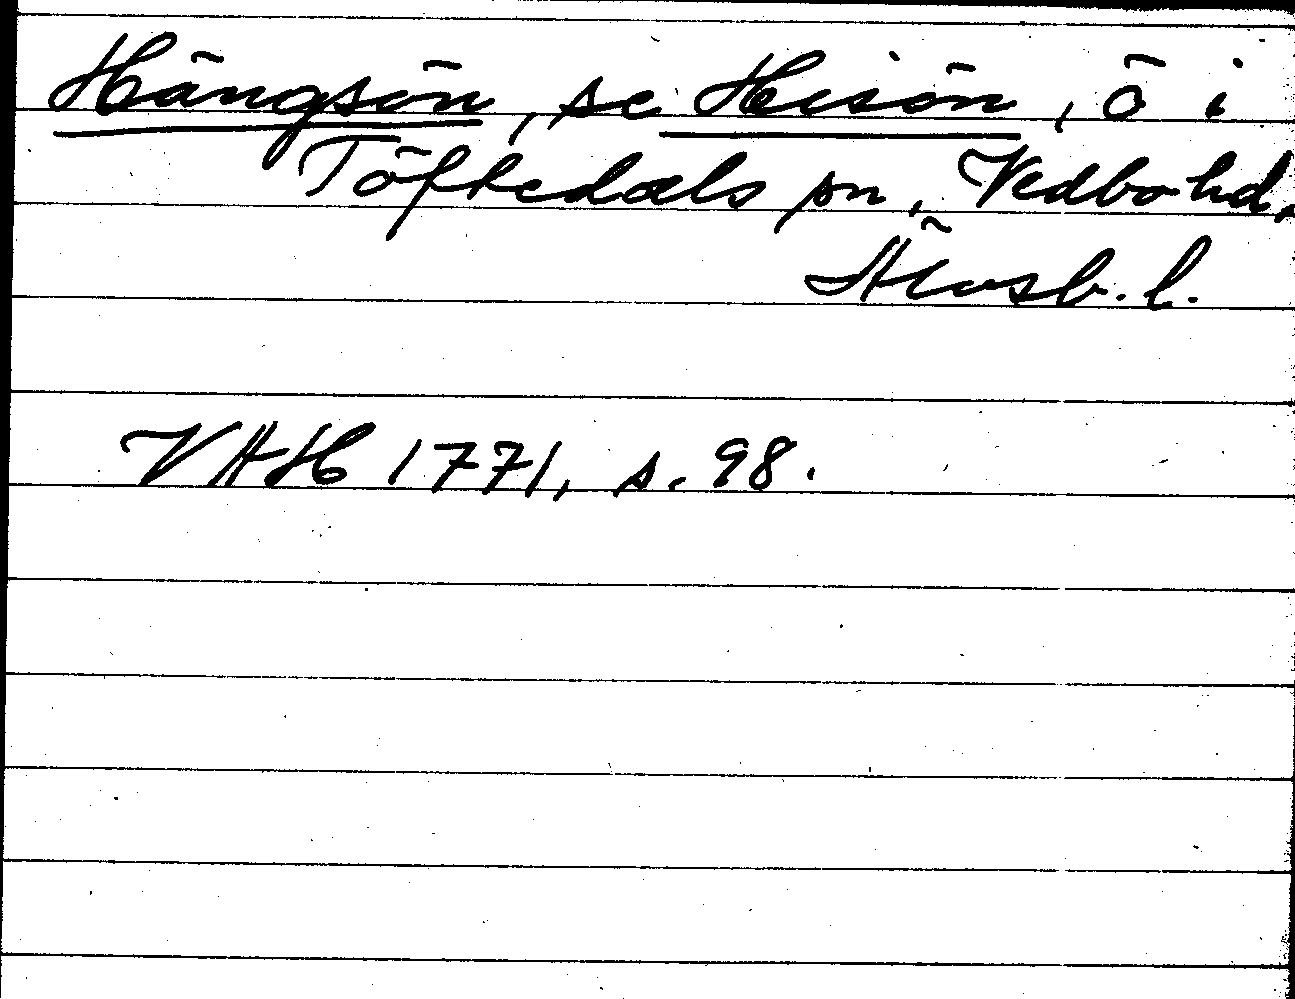 Hängsön, se Heisön, ö i
Töftedals sn, Vedbo hd,
Älvsb. l.
VHH 1771, s. 98.